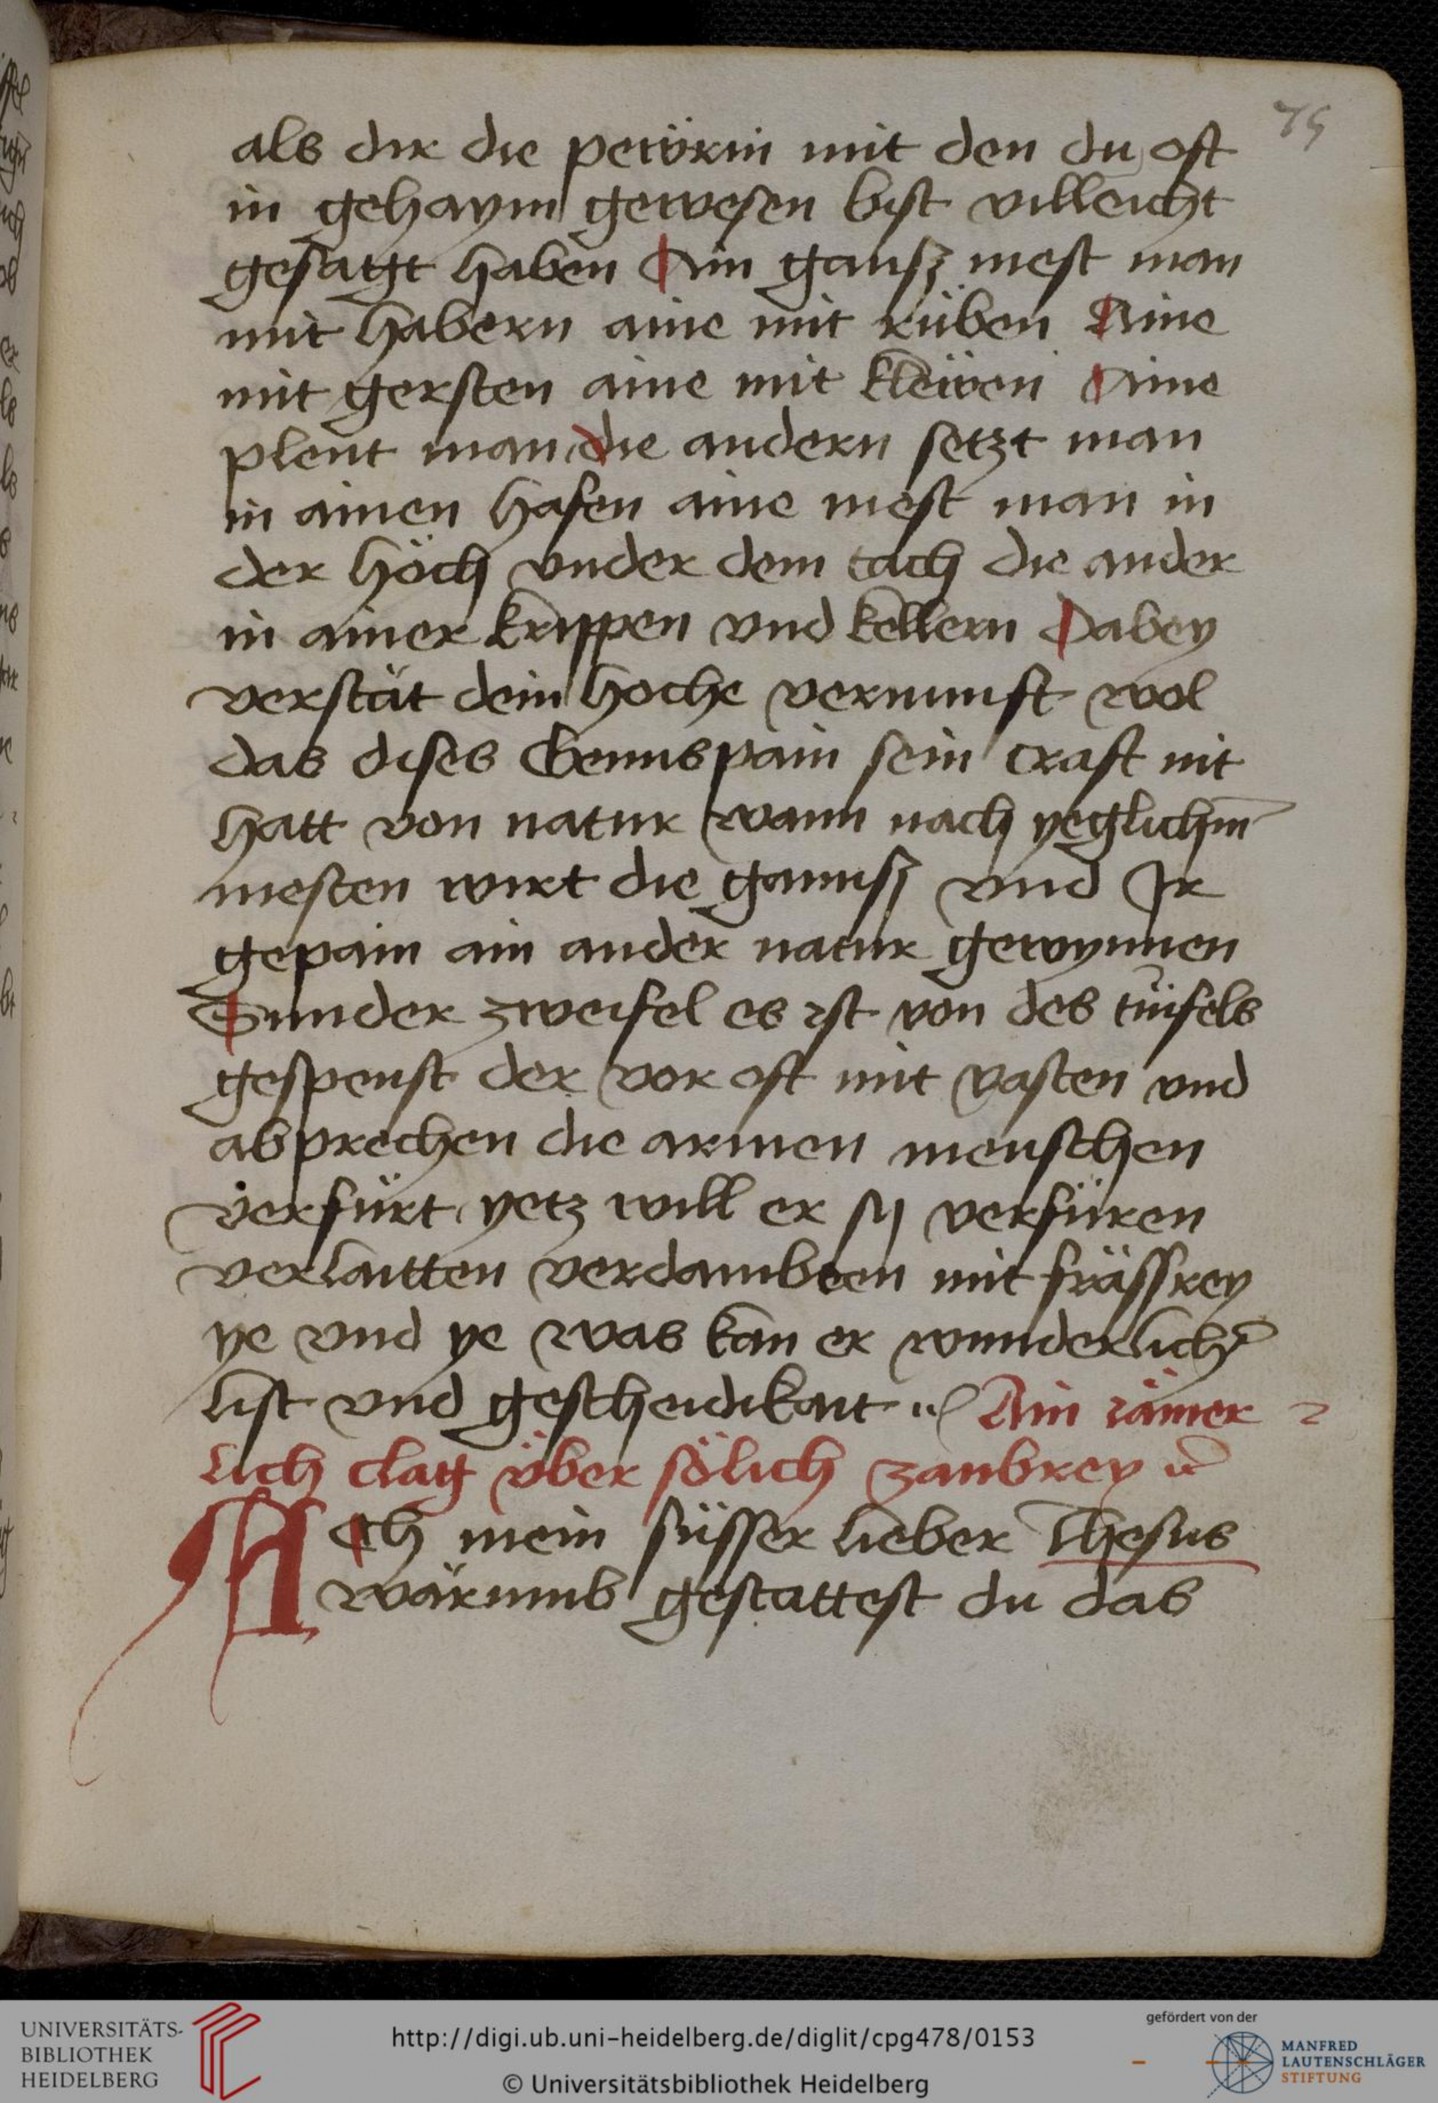 75
als dir die pewrin mit den du oft
in gehaym gewesen bist villeicht
gesagt haben Ain gansz mest man
mit habern aine mit rüben Aine
mit gersten aine mit kleiven Aine
plent man die andern setzt man
in ainen hafen aine mest man in
der höch vnder dem tach die ander
in ainer krippen vnd kellern Dabey
verstät dein hoche vernunft wol
das dises Genns pain sein craft nit
hatt von natur wann nach yeglichm̄
mesten wirt die gannsz vnd Ir
gepain ain ander natur gewynnen
Sunder zweifel es ist von des tüifels
gespenst der vor oft mit vasten vnd
abprechen die armen menschen
verfürt yetz will er sy verfüren
verlaitten verdambten mit frässrey
ye vnd ye was kan er wunderlicher
list vnd gescheidikait Ain iämer
lich clag über sölich zaubrey
Ach mein süsser lieber Jhesus
wärumb gestattest du das
UNIVERSITÄTS-
BIBLIOTHEK
HEIDELBERG
http://digi.ub.uni-heidelberg.de/diglit/cpg478/0153
© Universitätsbibliothek Heidelberg
gefördert von der
MANFRED
LAUTENSCHLÄGER
STIFTUNG